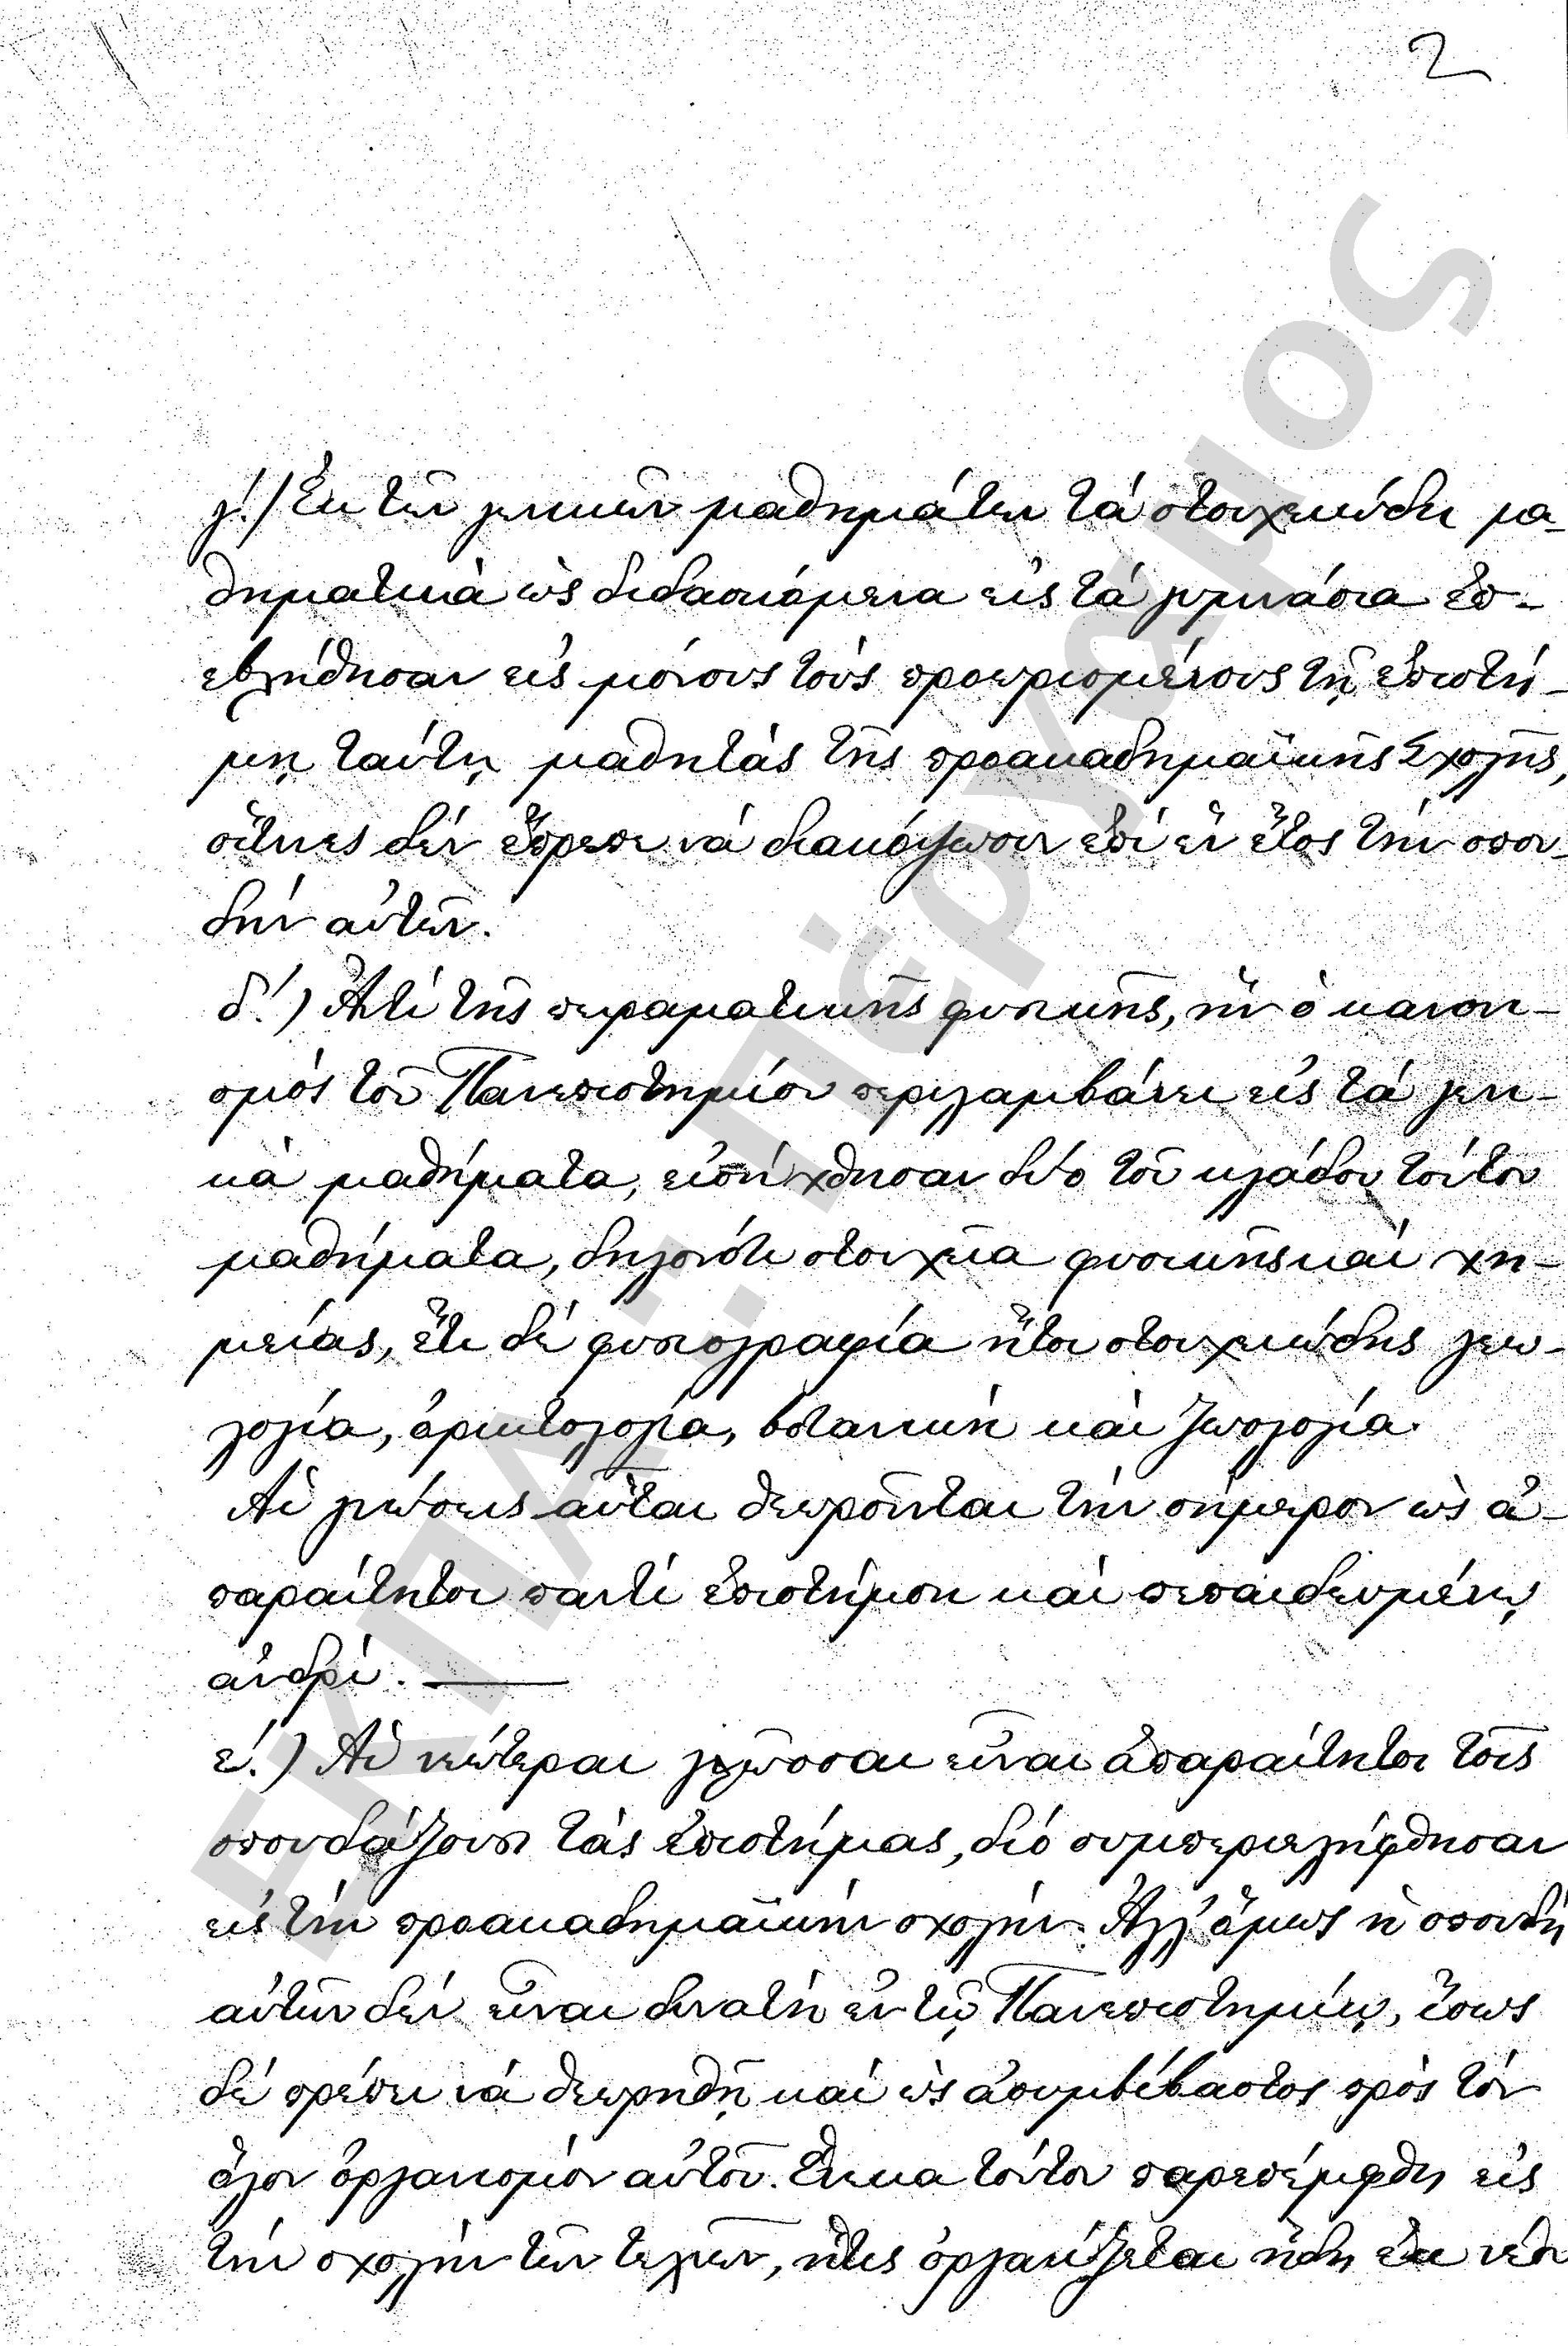 2
γ'.) Ἐκ τῶν γενικῶν μαθημάτων τὰ στοιχειώδη μα-
θηματικὰ ὡς διδασκόμενα εἰς τὰ γυμνάσια ἐπ-
εβλήθησαν εἰς μόνους τοὺς προωρισμένους τῇ ἐπιστή-
μῃ ταύτῃ μαθητὰς τῆς προακαδημαϊκῆς Σχολῆς,
οἵτινες δὲν ἔπρεπε νὰ διακόψωσιν ἐπὶ ἓν ἔτος τὴν σπου-
δὴν αὐτῶν.
δ'.) Ἀντὶ τῆς πειραματικῆς φυσικῆς, ἣν ὁ κανονι-
σμὸς τοῦ Πανεπιστημίου περιλαμβάνει εἰς τὰ γενι-
κὰ μαθήματα, εἰσήχθησαν δύο τοῦ κλάδου τούτου
μαθήματα, δηλονότι στοιχεῖα φυσικῆς καὶ χη-
μείας, ἔτι δὲ φυσιογραφία ἤτοι στοιχειώδης γεω-
λογία, ὀρυκτολογία, βοτανικὴ καὶ ζωολογία.
Αἱ γνώσεις αὗται θεωροῦνται τὴν σήμερον ὡς ἀ-
παραίτητοι παντὶ ἐπιστήμονι καὶ πεπαιδευμένῳ
ἀνδρί.
ε'.) Αἱ νεώτεραι γλῶσσαι εἶναι ἀπαραίτητοι τοῖς
σπουδάζουσι τὰς ἐπιστήμας, διὸ συμπεριελήφθησαν
εἰς τὴν προακαδημαϊκὴν σχολήν. Ἀλλ' ὅμως ἡ σπουδὴ
αὐτῶν δὲν εἶναι δυνατὴ ἐν τῷ Πανεπιστημίῳ, ἴσως
δὲ πρέπει νὰ θεωρηθῇ καὶ ὡς ἀσυμβίβαστος πρὸς τὸν
ὅλον ὀργανισμὸν αὐτοῦ. Ἕνεκα τούτου παρεπέμφθη εἰς
τὴν σχολὴν τῶν τεχνῶν, ἥτις ὀργανίζεται ἤδη ἐκ νέου
ΕΚΠΑ: Πέργαμος